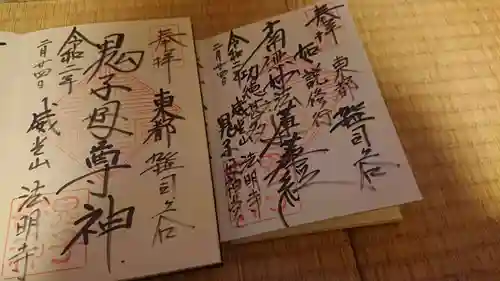 奉拝
東都 雑司ヶ谷
鬼子母尊神
令和二年
二月廿四日
威光山 法明寺
奉拝
東都 雑司ヶ谷
如説修行
南無妙法蓮華経
功徳甚多
令和二年
二月廿四日
威光山 法明寺